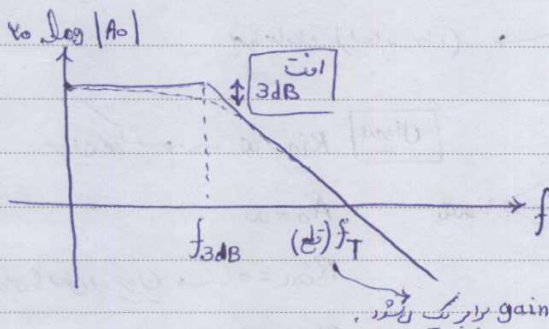 ۲۰ log |A₀|
افت
3dB
f
f3dB
(قطع) fT
gain برابر یک می‌شود.